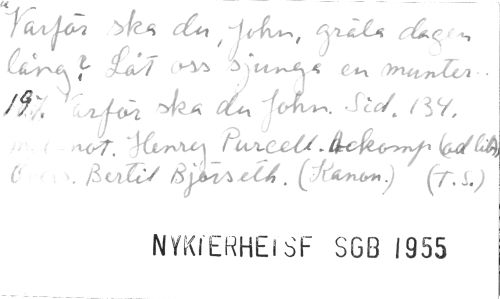 "Varför ska du, John, gråla dagen
lång? Låt oss sjunga en munter..
197. Varför ska du John. Sid. 134.
m. not. Henry Purcell. Ackomp (ad lib)
Övers. Bertil Björseth. (Kanon.) (T.S.)
NYKTERHETSF SGB 1955